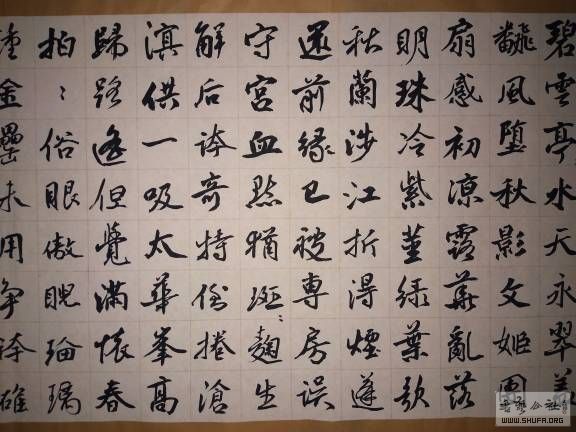 碧雲亭水天永翠
飜風墮秋影文姬團
扇感初涼露華亂落
明珠冷紫莖綠葉歌
秋蘭涉江折得煙
還前緣已被專房誤
守宮血點猶斑〻麹生
解后誇奇特倒捲滄
溟供一吸太華峯高
歸路遙但覺滿懷春
拍〻俗眼傲睨璃
金罍未用爭誇
WWW.SHUFA.ORG